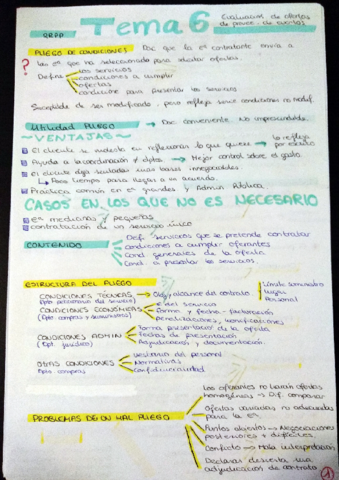 QRPP
Tema 6
Evaluacion de ofertas
de provee. de eventos
PLIEGO DE CONDICIONES Doc que la eª contratante envia a
? las eª que ha seleccionado para solicitar ofertas.
Define los servicios
condiciones a cumplir
ofertas
condiciones para presentar los servicios
Susceptible de ser modificado, pero refleja unas condiciones no modif.
Utilidad PLIEGO → Doc conveniente. No imprescindible.
~VENTAJAS~
El cliente se molesta en reflexionar lo que quiere lo refleja por escrito
Ayuda a la coordinación dptos. → Mejor control sobre el gasto.
El cliente deja sentadas unas bases innegociables
Poco tiempo para llegar a un acuerdo.
Práctica común en eª grandes y Admin Pública.
CASOS EN LOS QUE NO ES NECESARIO
eª medianas y pequeñas
contratación de un servicio único
CONTENIDO
Def. servicios que se pretende contratar
condiciones a cumplir ofertantes
Cond generales de la oferta
Cond. a prestar los servicios.
ESTRUCTURA DEL PLIEGO
CONDICIONES TÉCNICAS → Obj y alcance del contrato
lugar
Personal
CONDICIONES ECONÓMICAS
(Dpto compras y suministros)
Forma y fecha facturación
Penalizaciones, bonificaciones
CONDICIONES ADMIN
(Dpt jurídico)
Forma presentacion de la oferta
Fechas de presentación
Adjudicación y documentación.
OTRAS CONDICIONES
Dpto compras
Vestuario del personal
Normativas
Confidencialidad
PROBLEMAS DE UN MAL PLIEGO
Los ofertantes no harán ofertas
homogéneas → Dif. comparar
Ofertas variadas no adecuadas
para la eª.
Puntos abiertos → Negociaciones
posteriores + difíciles.
Conflicto → Mala interpretación
Declarar desierta una
adjudicación de contrato
1